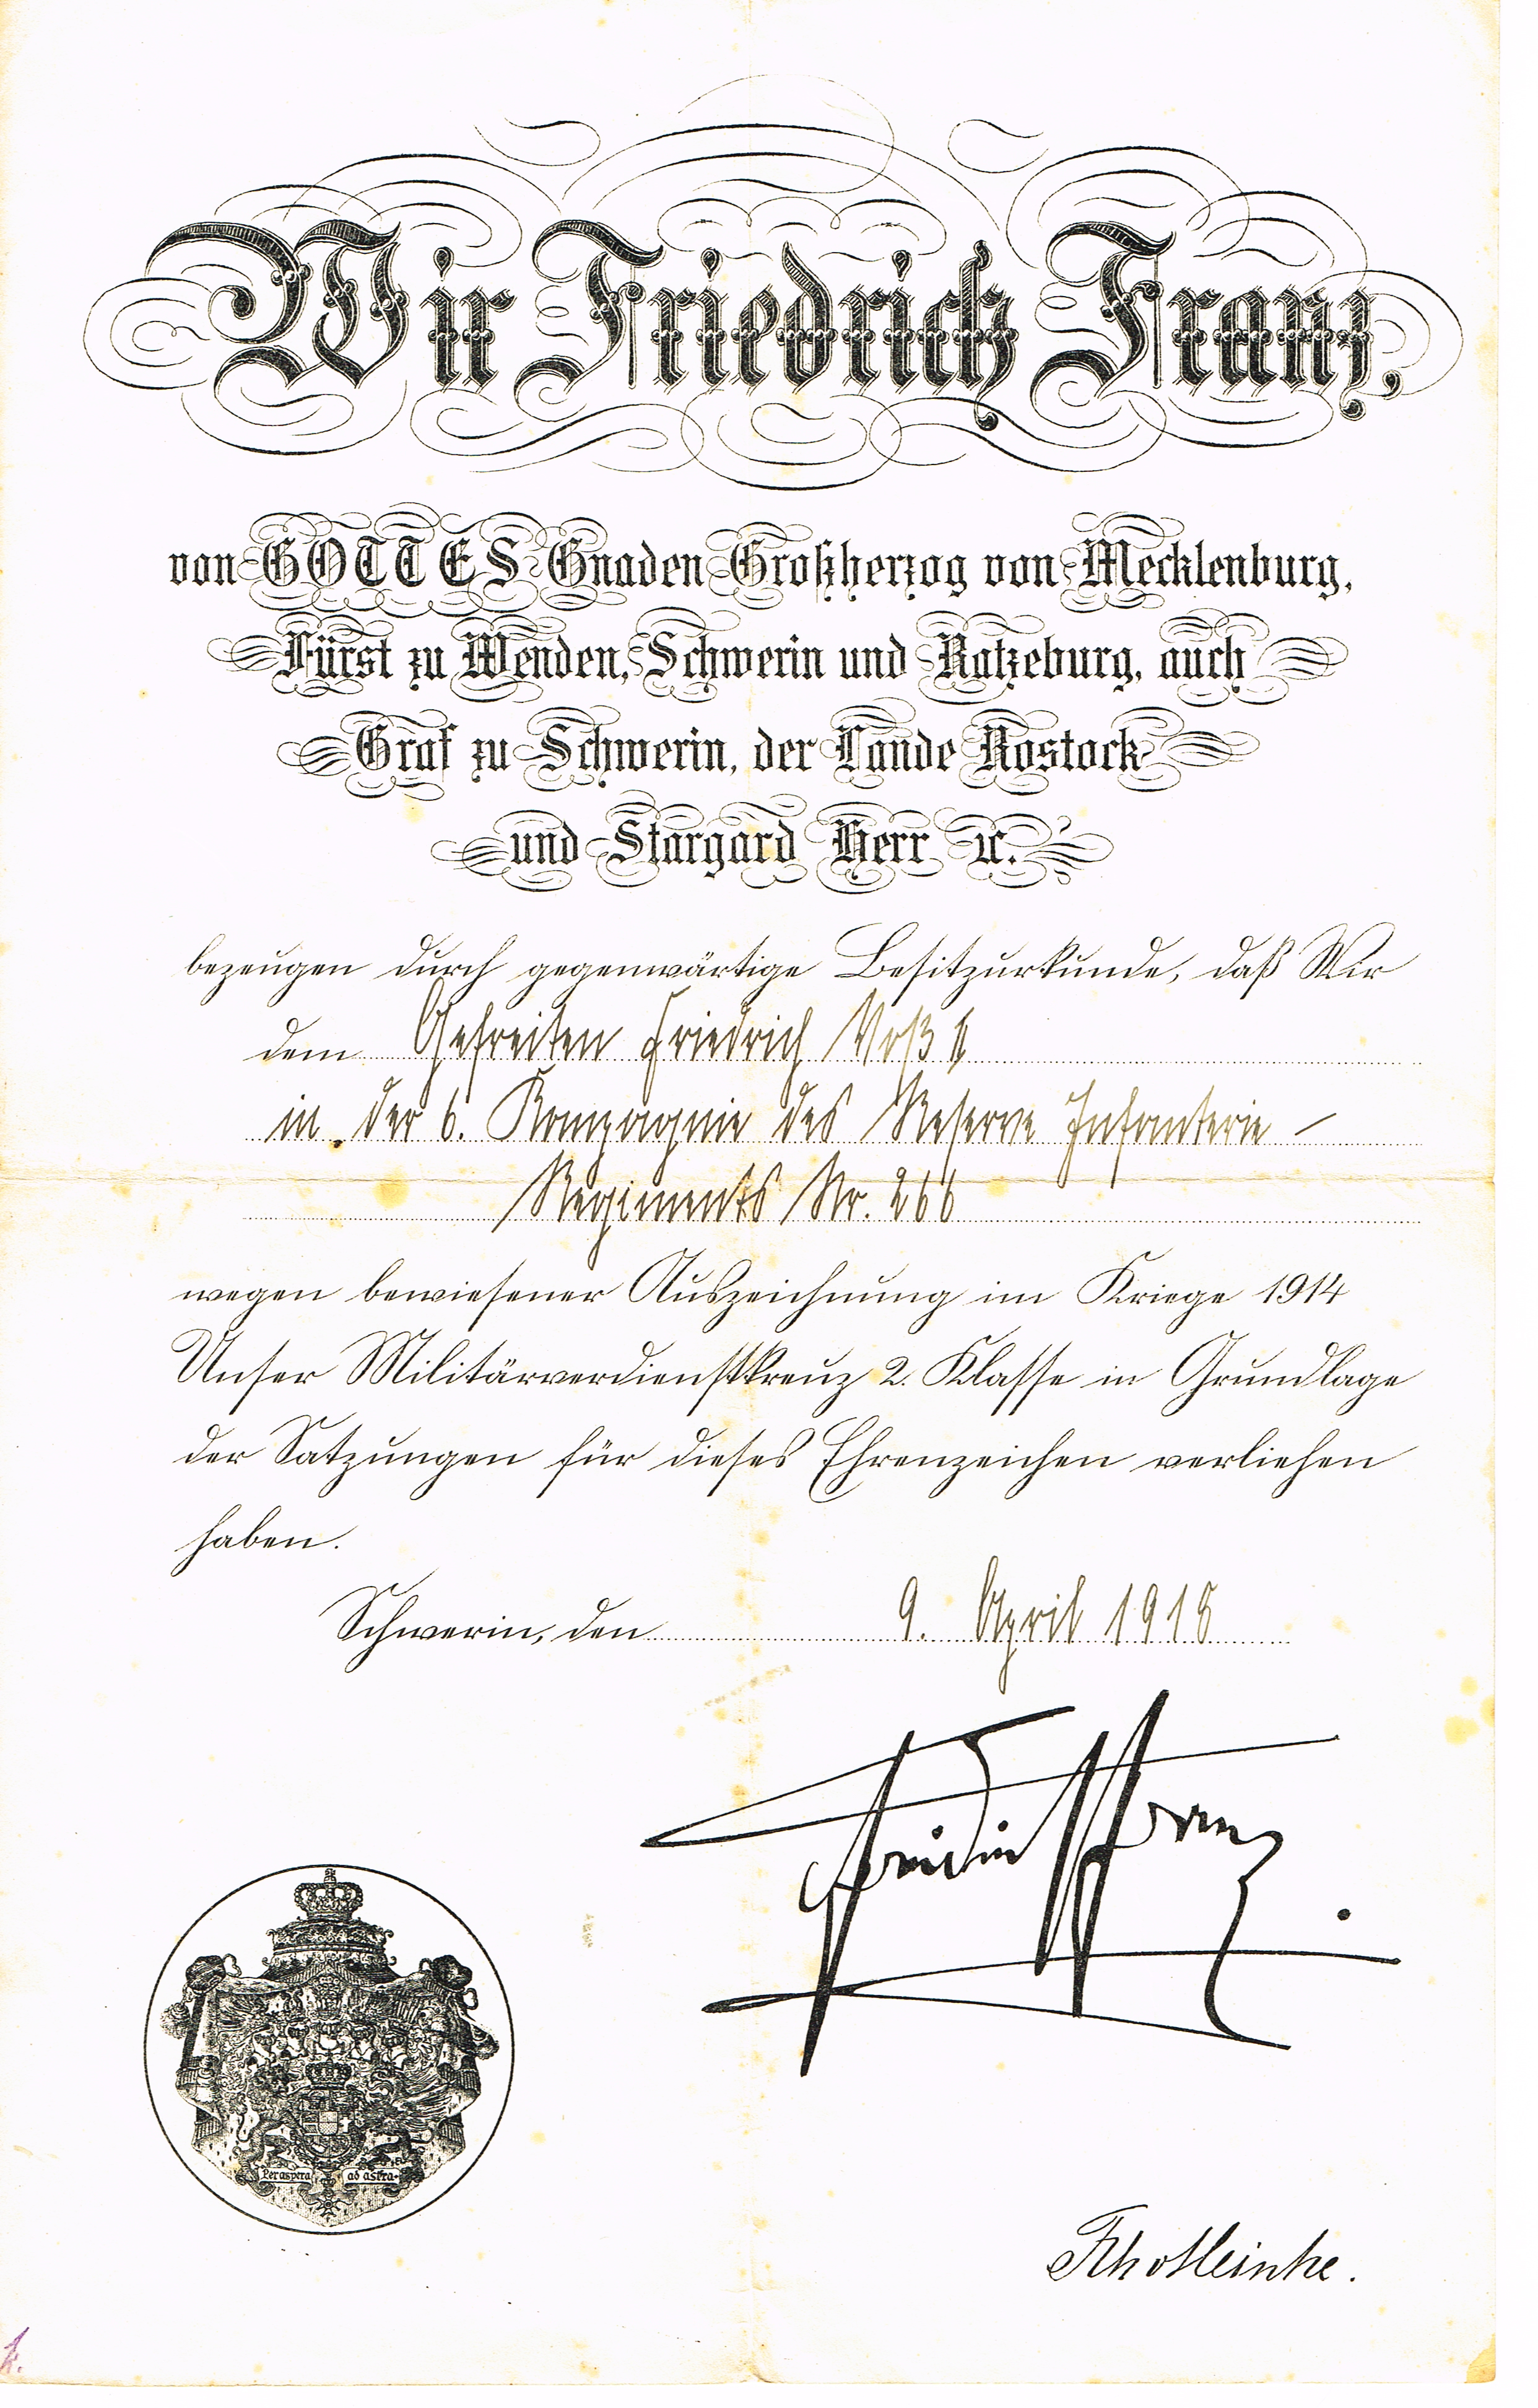 Wir Friedrich Franz,
von GOTTES Gnaden Großherzog von Mecklenburg,
Fürst zu Wenden, Schwerin und Ratzeburg, auch
Graf zu Schwerin, der Lande Rostock
und Stargard Herr ꝛc.
bezeugen durch gegenwärtige Besitzurkunde, daß Wir
dem Gefreiten Friedrich Voß
in der 6. Kompagnie des Reserve Infanterie-
Regiments Nr. 266
wegen bewiesener Auszeichnung im Kriege 1914
Unser Militärverdienstkreuz 2. Klasse in Grundlage
der Satzungen für dieses Ehrenzeichen verliehen
haben.
Schwerin, den 9. April 1918
Friedrich Franz
Per aspera ad astra